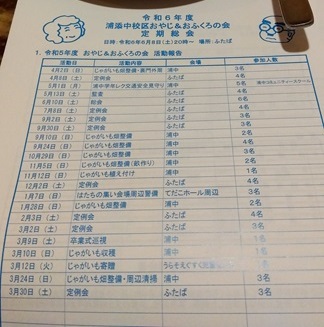 令和6年度
浦浜中校区おやじ&おふくろの会
定期総会
日時:令和6年6月8日(土)20時~ 場所:ふたば
1. 令和5年度 おやじ&おふくろの会 活動報告
活動日 活動内容 会場 参加人数
4月2日(日) じゃがいも畑整備・裏門片面 浦中 3名
4月8日(土) 定例会 ふたば 4名
5月1日(月) 浦中学年レク交通安全見守り 浦中 5名
5月13日(土) 監査 ふたば 4名
6月10日(土) 総会 ふたば 6名
7月8日(土) 定例会 ふたば 4名
9月2日(土) 定例会 ふたば 3名
9月30日(土) 定例会 ふたば 2名
9月10日(日) じゃがいも畑整備 浦中
9月24日(日) じゃがいも畑整備 浦中 4名
10月29日(日) じゃがいも畑整備 浦中 3名
11月5日(日) じゃがいも畑整備(畝作り) 浦中 2名
11月12日(日) じゃがいも植え付け 浦中 1名
12月2日(土) 定例会 ふたば 4名
1月7日(日) はたちの集い会場周辺警備 てだこホール周辺 3名
1月28日(日) じゃがいも畑整備 浦中 2名
2月3日(土) 定例会 ふたば 4名
3月2日(土) 定例会 ふたば 4名
3月9日(土) 卒業式巡視 浦中 1名
3月10日(日) じゃがいも収穫 浦中 3名
3月12日(火) じゃがいも寄贈 3名
3月24日(日) じゃがいも畑整備・周辺清掃 浦中 3名
3月30日(土) 定例会 ふたば 3名